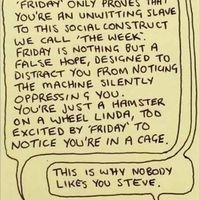 'FRIDAY' ONLY PROVES THAT
YOU'RE AN UNWITTING SLAVE
TO THIS SOCIAL CONSTRUCT
WE CALL 'THE WEEK'.
FRIDAY IS NOTHING BUT A
FALSE HOPE, DESIGNED TO
DISTRACT YOU FROM NOTICING
THE MACHINE SILENTLY
OPPRESSING YOU.
YOU'RE JUST A HAMSTER
ON A WHEEL LINDA, TOO
EXCITED BY 'FRIDAY' TO
NOTICE YOU'RE IN A CAGE.
THIS IS WHY NOBODY
LIKES YOU STEVE.